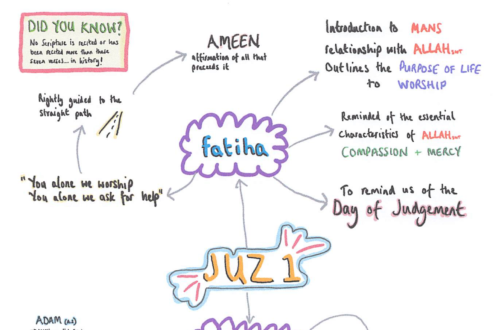 DID YOU KNOW?
No Scripture is recited or has
been recited more than these
seven verses... in history!
AMEEN
affirmation of all that
preceeds it
Introduction to MANS
relationship with ALLAH SWT
Outlines the PURPOSE OF LIFE
to WORSHIP
Rightly guided to the
straight path
fatiha
Reminded of the essential
characteristics of ALLAH SWT
COMPASSION + MERCY
"You alone we worship
You alone we ask for help"
To remind us of the
Day of Judgement
JUZ 1
ADAM (as)